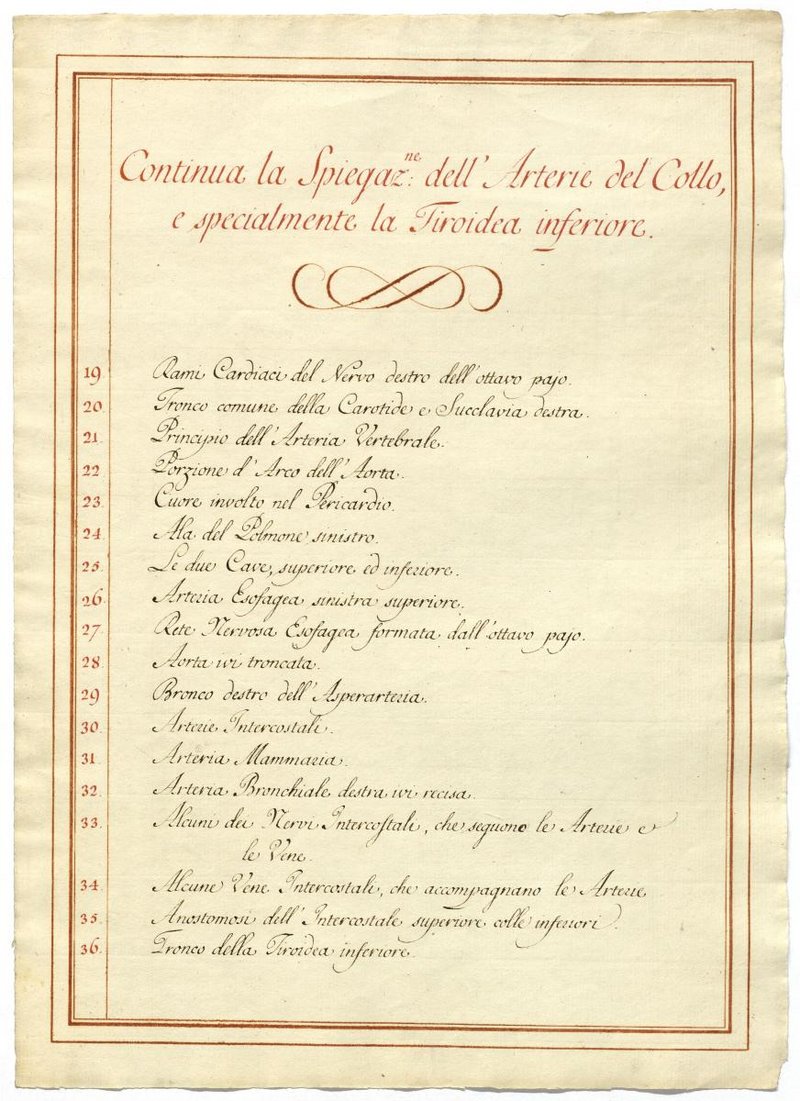 Continua la Spiegaz.ne dell'Arterie del Collo,
e specialmente la Tiroidea inferiore.
19 Rami Cardiaci del Nervo destro dell'ottavo pajo.
20 Tronco comune della Carotide e Succlavia destra.
21 Principio dell'Arteria Vertebrale.
22 Porzione d'Arco dell'Aorta.
23 Cuore involto nel Pericardio.
24 Ala del Polmone sinistro.
25 Le due Cave, superiore ed inferiore.
26 Arteria Esofagea sinistra superiore.
27 Rete Nervosa Esofagea formata dall'ottavo pajo.
28 Aorta ivi troncata.
29 Bronco destro dell'Asperarteria.
30 Arterie Intercostali.
31 Arteria Mammaria.
32 Arteria Bronchiale destra ivi recisa.
33 Alcuni dei Nervi Intercostali, che seguono le Arterie e
le Vene.
34 Alcune Vene Intercostali, che accompagnano le Arterie
35 Anostomosi dell'Intercostale superiore colle inferiori.
36 Tronco della Tiroidea inferiore.